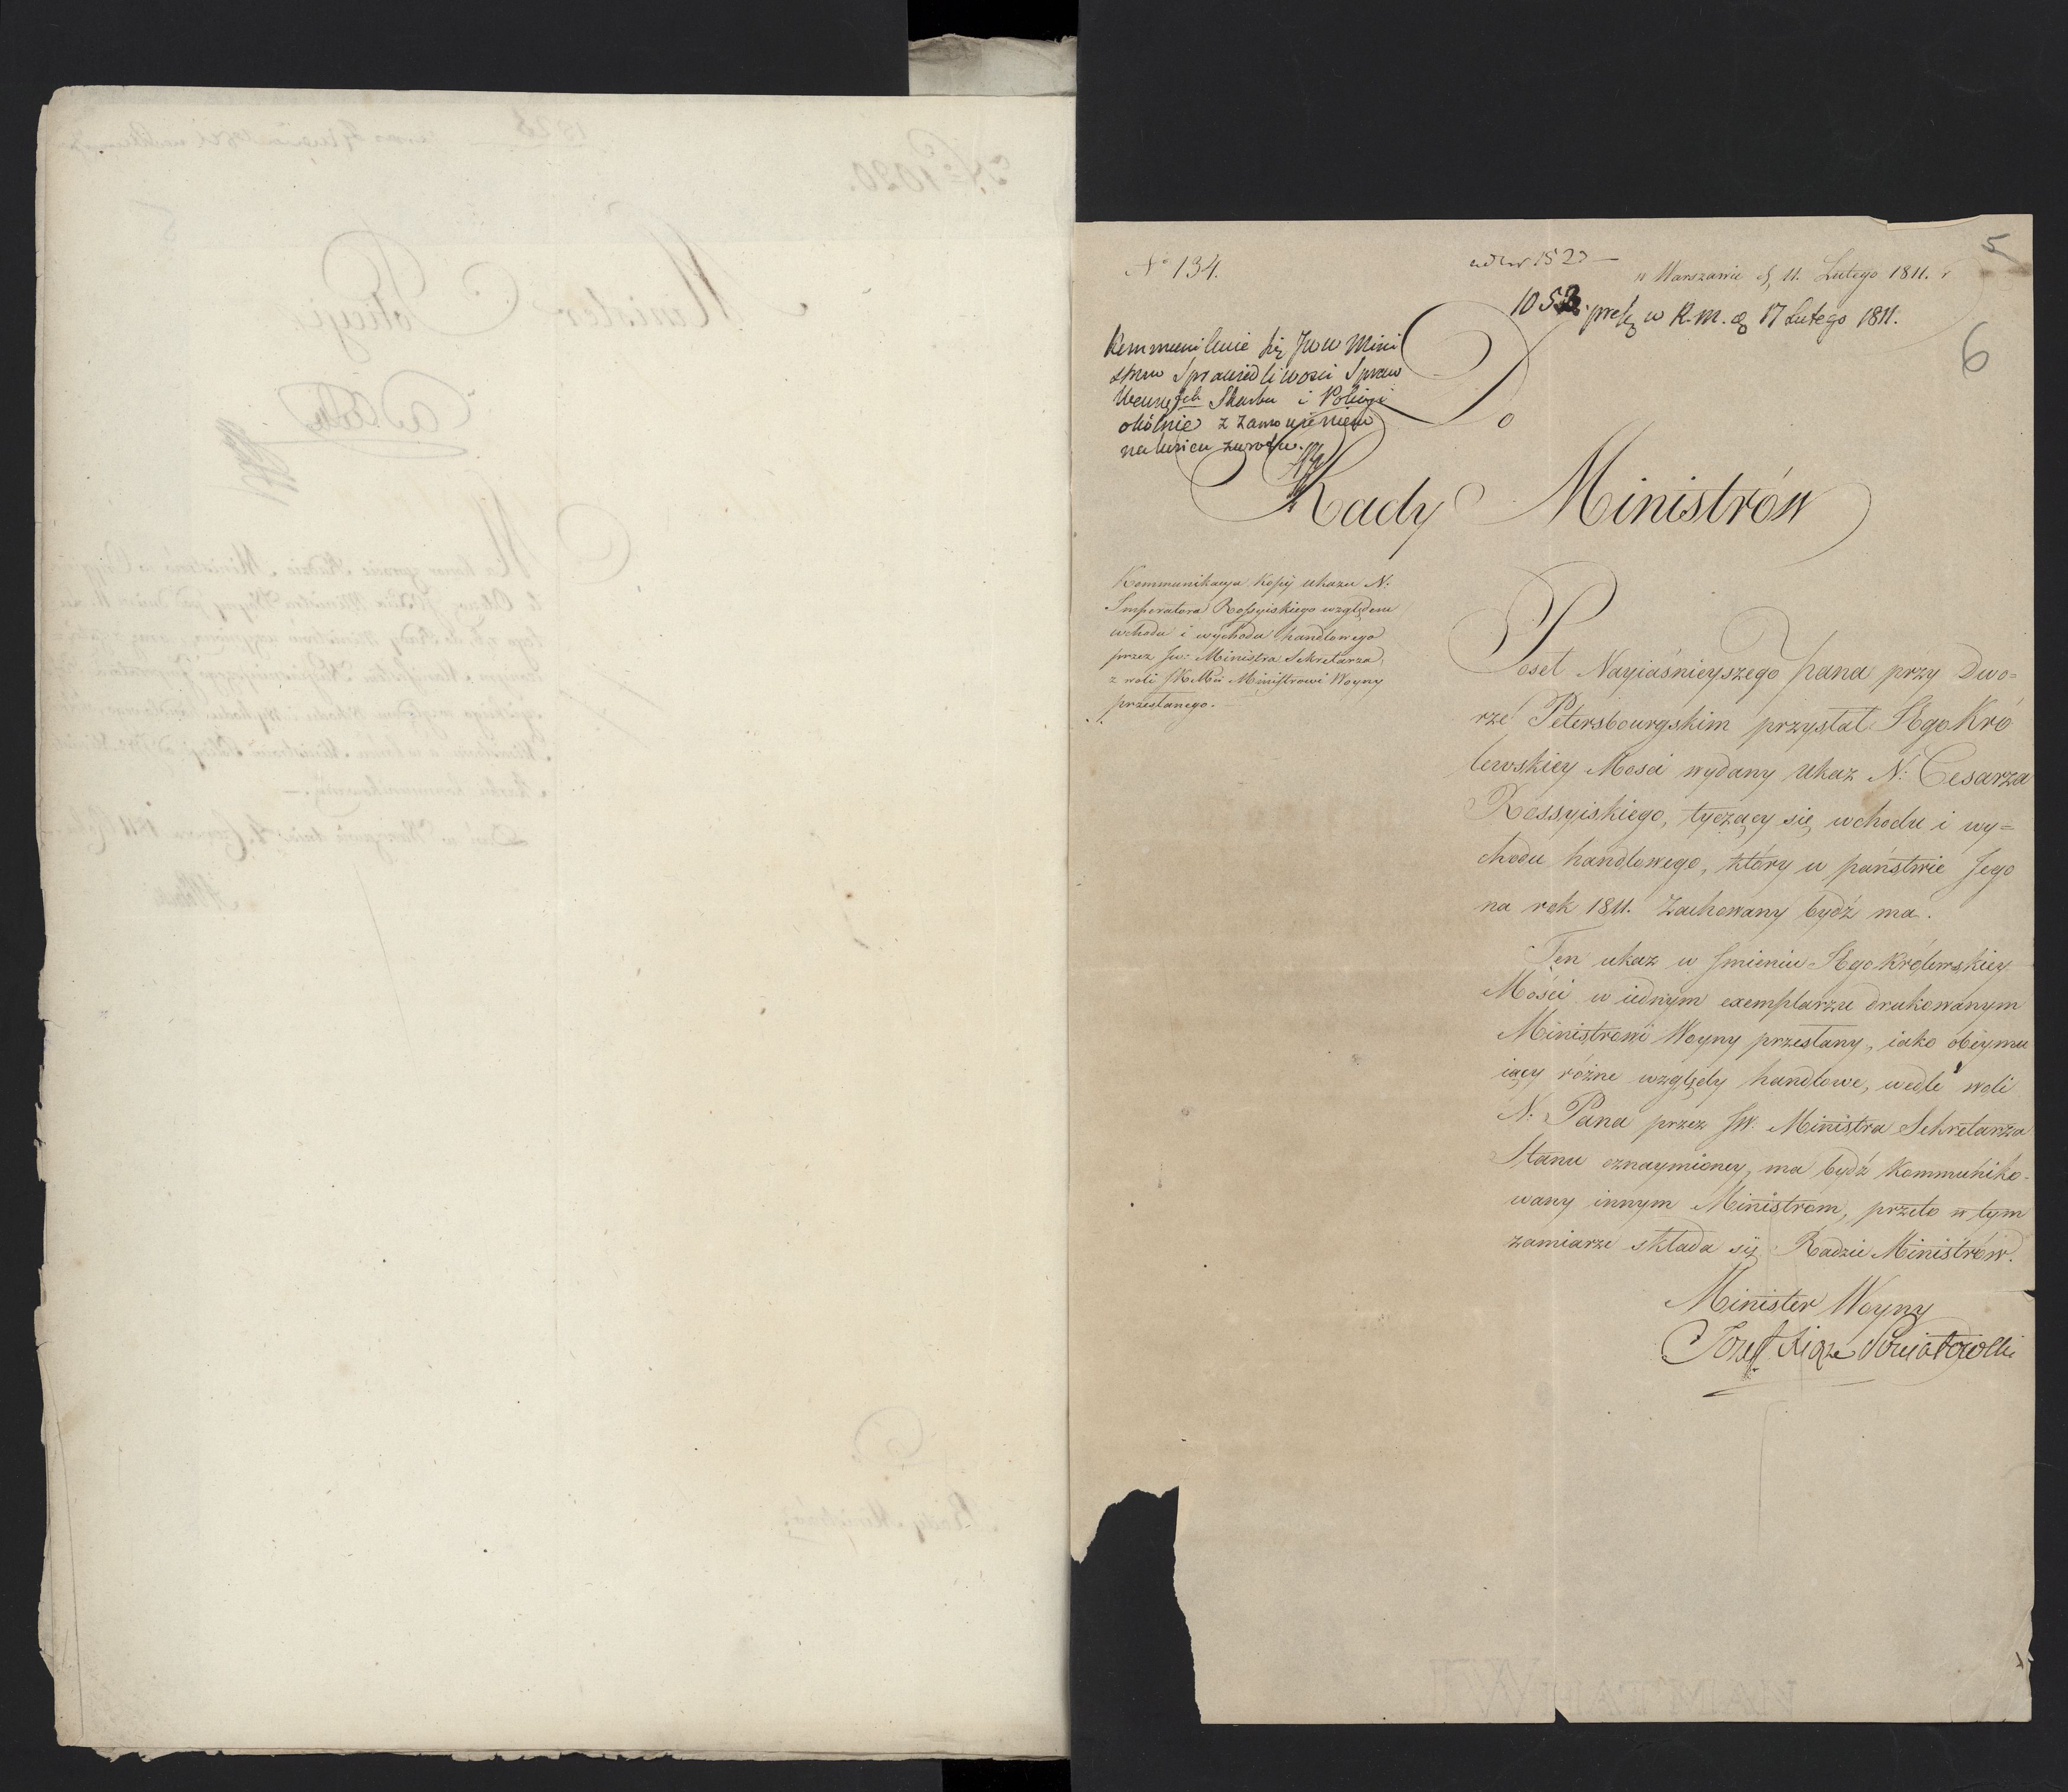 N° 134.
1523
w Warszawie d. 11. Lutego 1811. r
5
1053. pres. w R. M. d. 17 Lutego 1811.
6
Kommunikuie się JWW Mini
strom Sprawiedliwosci Spraw
Wewnętych Skarbu i Policyi
okólnie z zamowieniem
na koncu zwrotu.
Do
Rady Ministrów
Kommunikacya Kopij ukazu N.
Imperatora Rossyiskiego względem
wchodu i wychodu handlowego
przez Jw: Ministra Sekretarza
z woli JKMci Ministrowi Woyny
przesłanego.
Poseł Nayiaśnieyszego pana przy Dwo=
rze Petersbourgskim przysłał Jego Kró
lewskiey Mosci wydany Ukaz N: Cesarza
Rossyiskiego, tyczący się wchodu i wy=
chodu handlowego, który w państwie Jego
na rok 1811. Zachowany bydź ma.
Ten ukaz w Jmieniu Jego Królewskiey
Mości w iednym exemplarzu drukowanym
Ministrowi Woyny przesłany, iako obeymu
iący różne względy handlowe, wedle woli
N: Pana przez JW. Ministra Sekretarza
Stanu oznaymioney, ma bydź kommuniko-
wany innym Ministrom, przeto w tym
zamiarze składa się Radzie Ministrów.
Minister Woyny
Jozef Xiąże Poniatowski